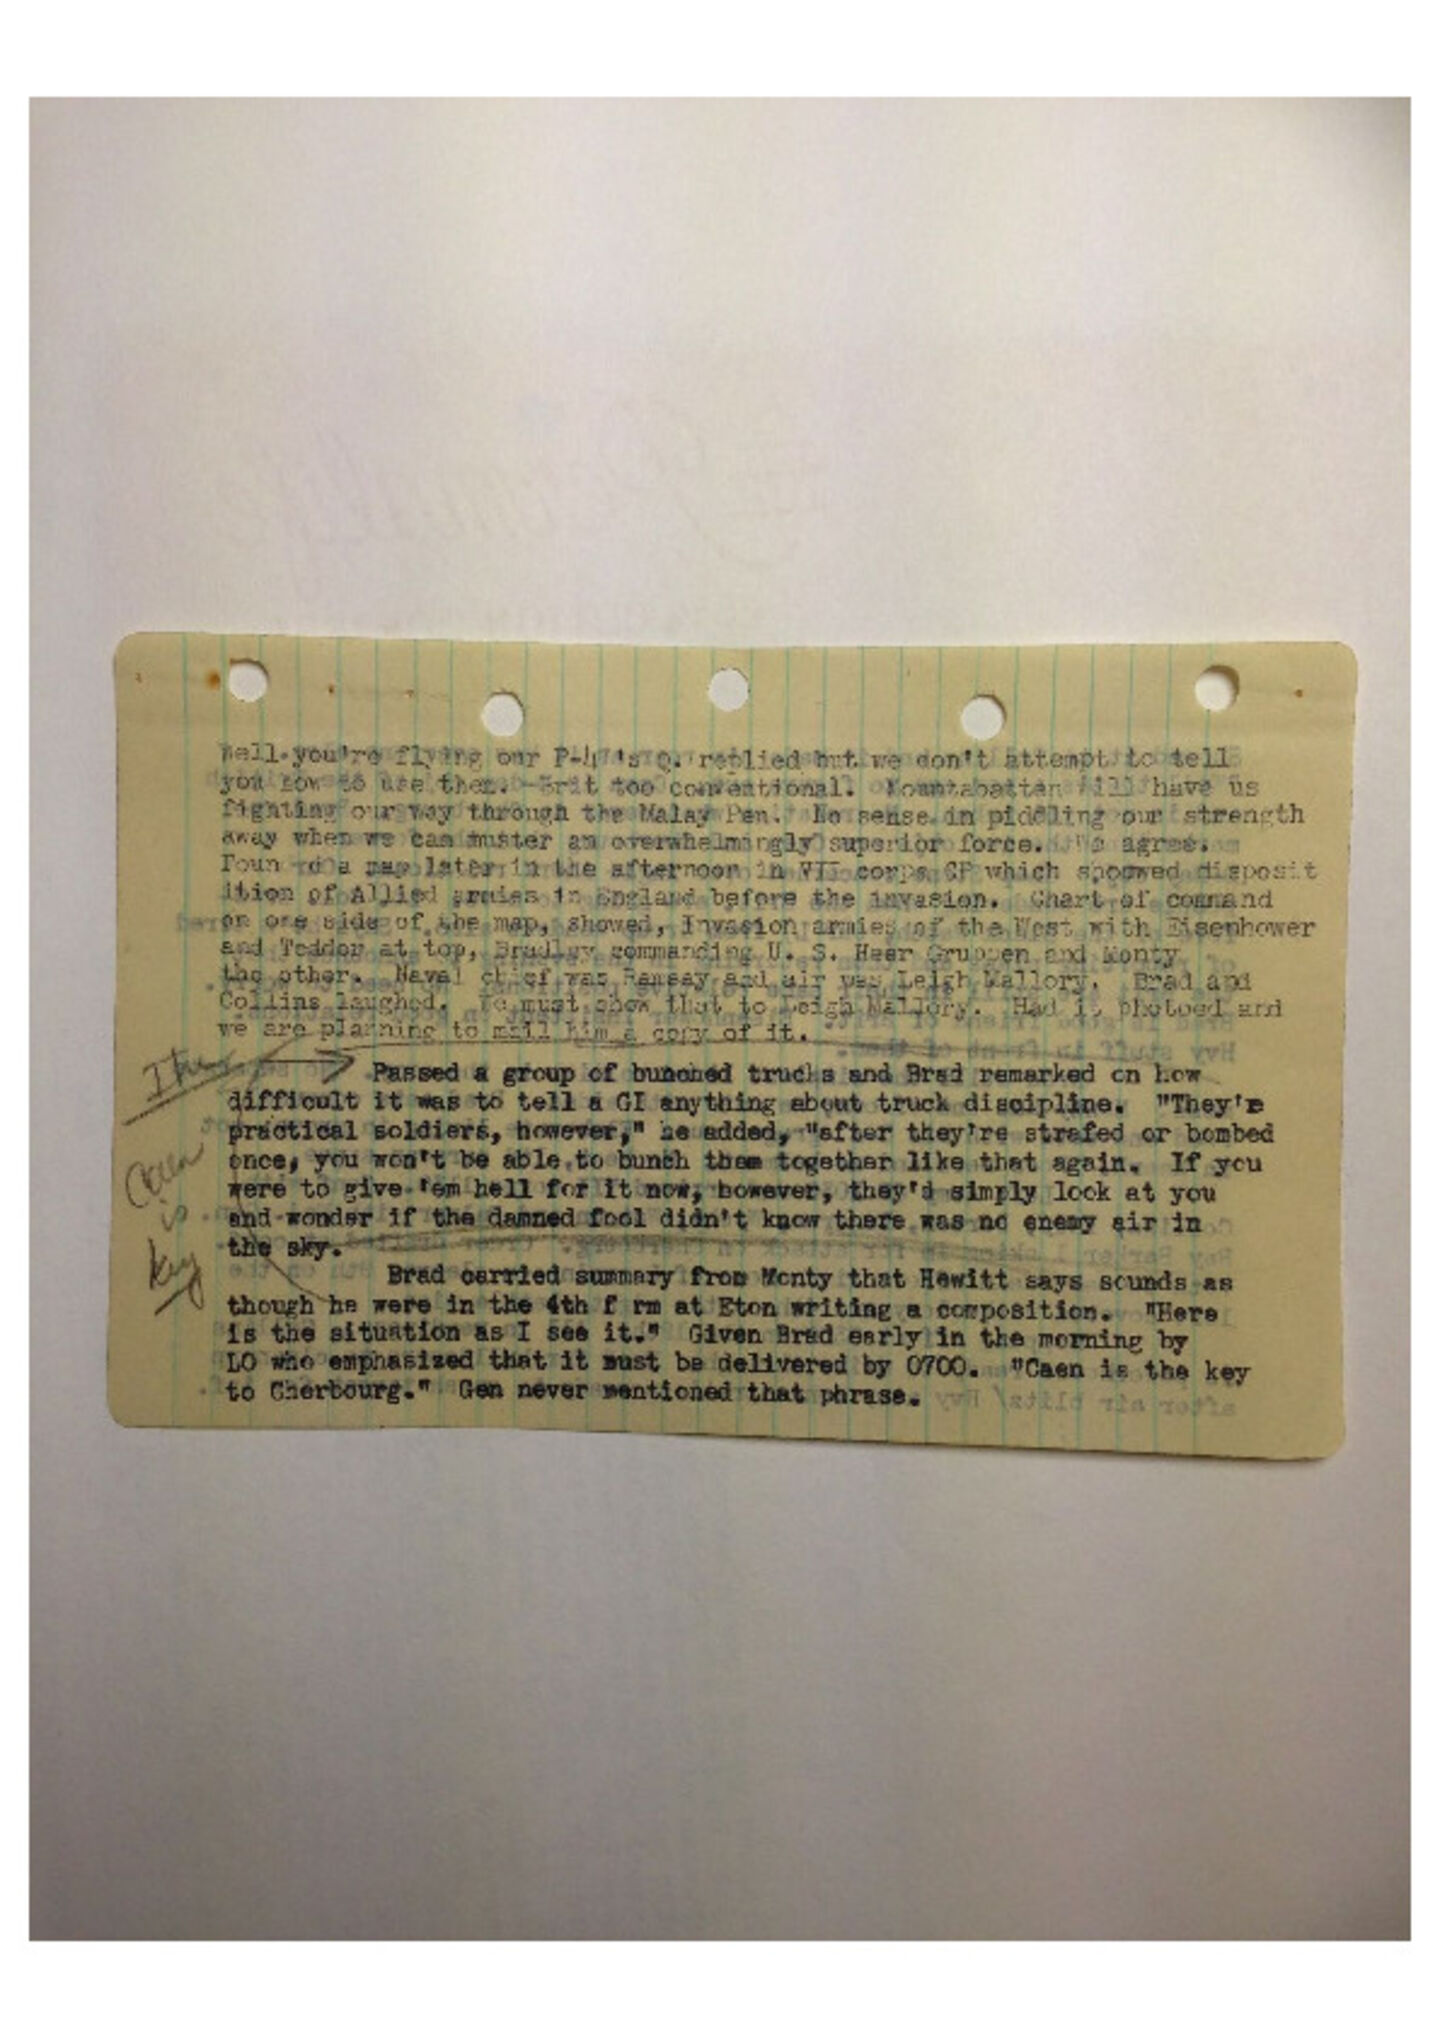 Well you're flying our P-47's Q. replied but we don't attempt to tell
you how to use them. Brit too conventional. Mountabatten will have us
fighting our way through the Malay Pen. No sense in piddling our strength
away when we can muster an overwhelmingly superior force. We agree.
Foun d a map later in the afternoon in VII corps CP which shoowed disposit
ition of Allied armies in England before the invasion. Chart of command
on one side of the map, showed, Invasion armies of the West with Eisenhower
and Tedder at top, Bradley commanding U. S. Heer Gruppen and Monty
the other. Naval chief was Ramsay and air was Leigh Mallory. Brad and
Collins laughed. We must show that to Leigh Mallory. Had it photoed and
we are planning to mail him a copy of it.
Passed a group of bunched trucks and Brad remarked on how
difficult it was to tell a GI anything about truck discipline. "They're
practical soldiers, however," he added, "after they're strafed or bombed
once, you won't be able to bunch them together like that again. If you
were to give 'em hell for it now, however, they'd simply look at you
and wonder if the damned fool didn't know there was no enemy air in
the sky.
Caen
is
key
Brad carried summary from Monty that Hewitt says sounds as
though he were in the 4th f rm at Eton writing a composition. "Here
is the situation as I see it." Given Brad early in the morning by
LO who emphasized that it must be delivered by 0700. "Caen is the key
to Cherbourg." Gen never mentioned that phrase.